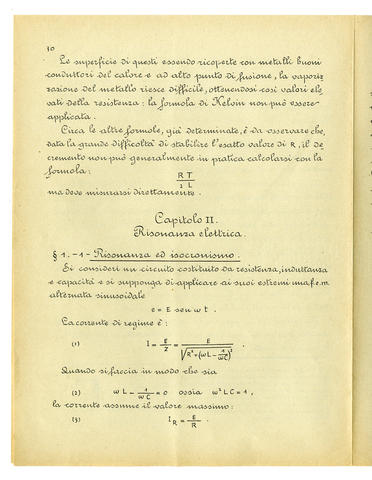 10
Le superficie di questi essendo ricoperte con metalli buoni
conduttori del calore e ad alto punto di fusione, la vaporiz
zazione del metallo riesce difficile, ottenendosi così valori ele
vati della resistenza: la formola di Kelvin non può essere
applicata.
Circa le altre formole, già determinate, è da osservare che,
data la grande difficoltà di stabilire l'esatto valore di R, il de
cremento non può generalmente in pratica calcolarsi con la
formola:
R T / 2 L
ma deve misurarsi direttamente.
Capitolo II.
Risonanza elettrica.
§ 1. -1- Risonanza ed isocronismo.
Si consideri un circuito costituito da resistenza, induttanza
e capacità e si supponga di applicare ai suoi estremi una f.e.m
alternata sinusoidale
e = E sen ω t .
La corrente di regime è:
(1) I = E/Z = E / √(R² + (ωL - 1/ωC)²) .
Quando si faccia in modo che sia
(2) ωL - 1/ωC = 0 ossia ω² L C = 1 ,
la corrente assume il valore massimo:
(3) I_R = E/R